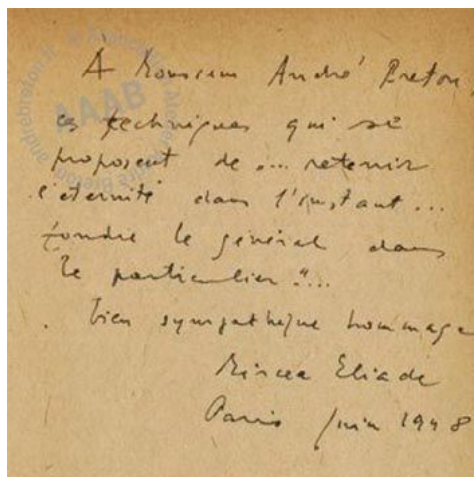 A Monsieur André Breton,
ces techniques qui se
proposent de... retenir
l'éternité dans l'instant...
fondre le général dans
le particulier"...
bien sympathique hommage
Mircea Eliade
Paris juin 1948
AAAB
andrebreton.fr